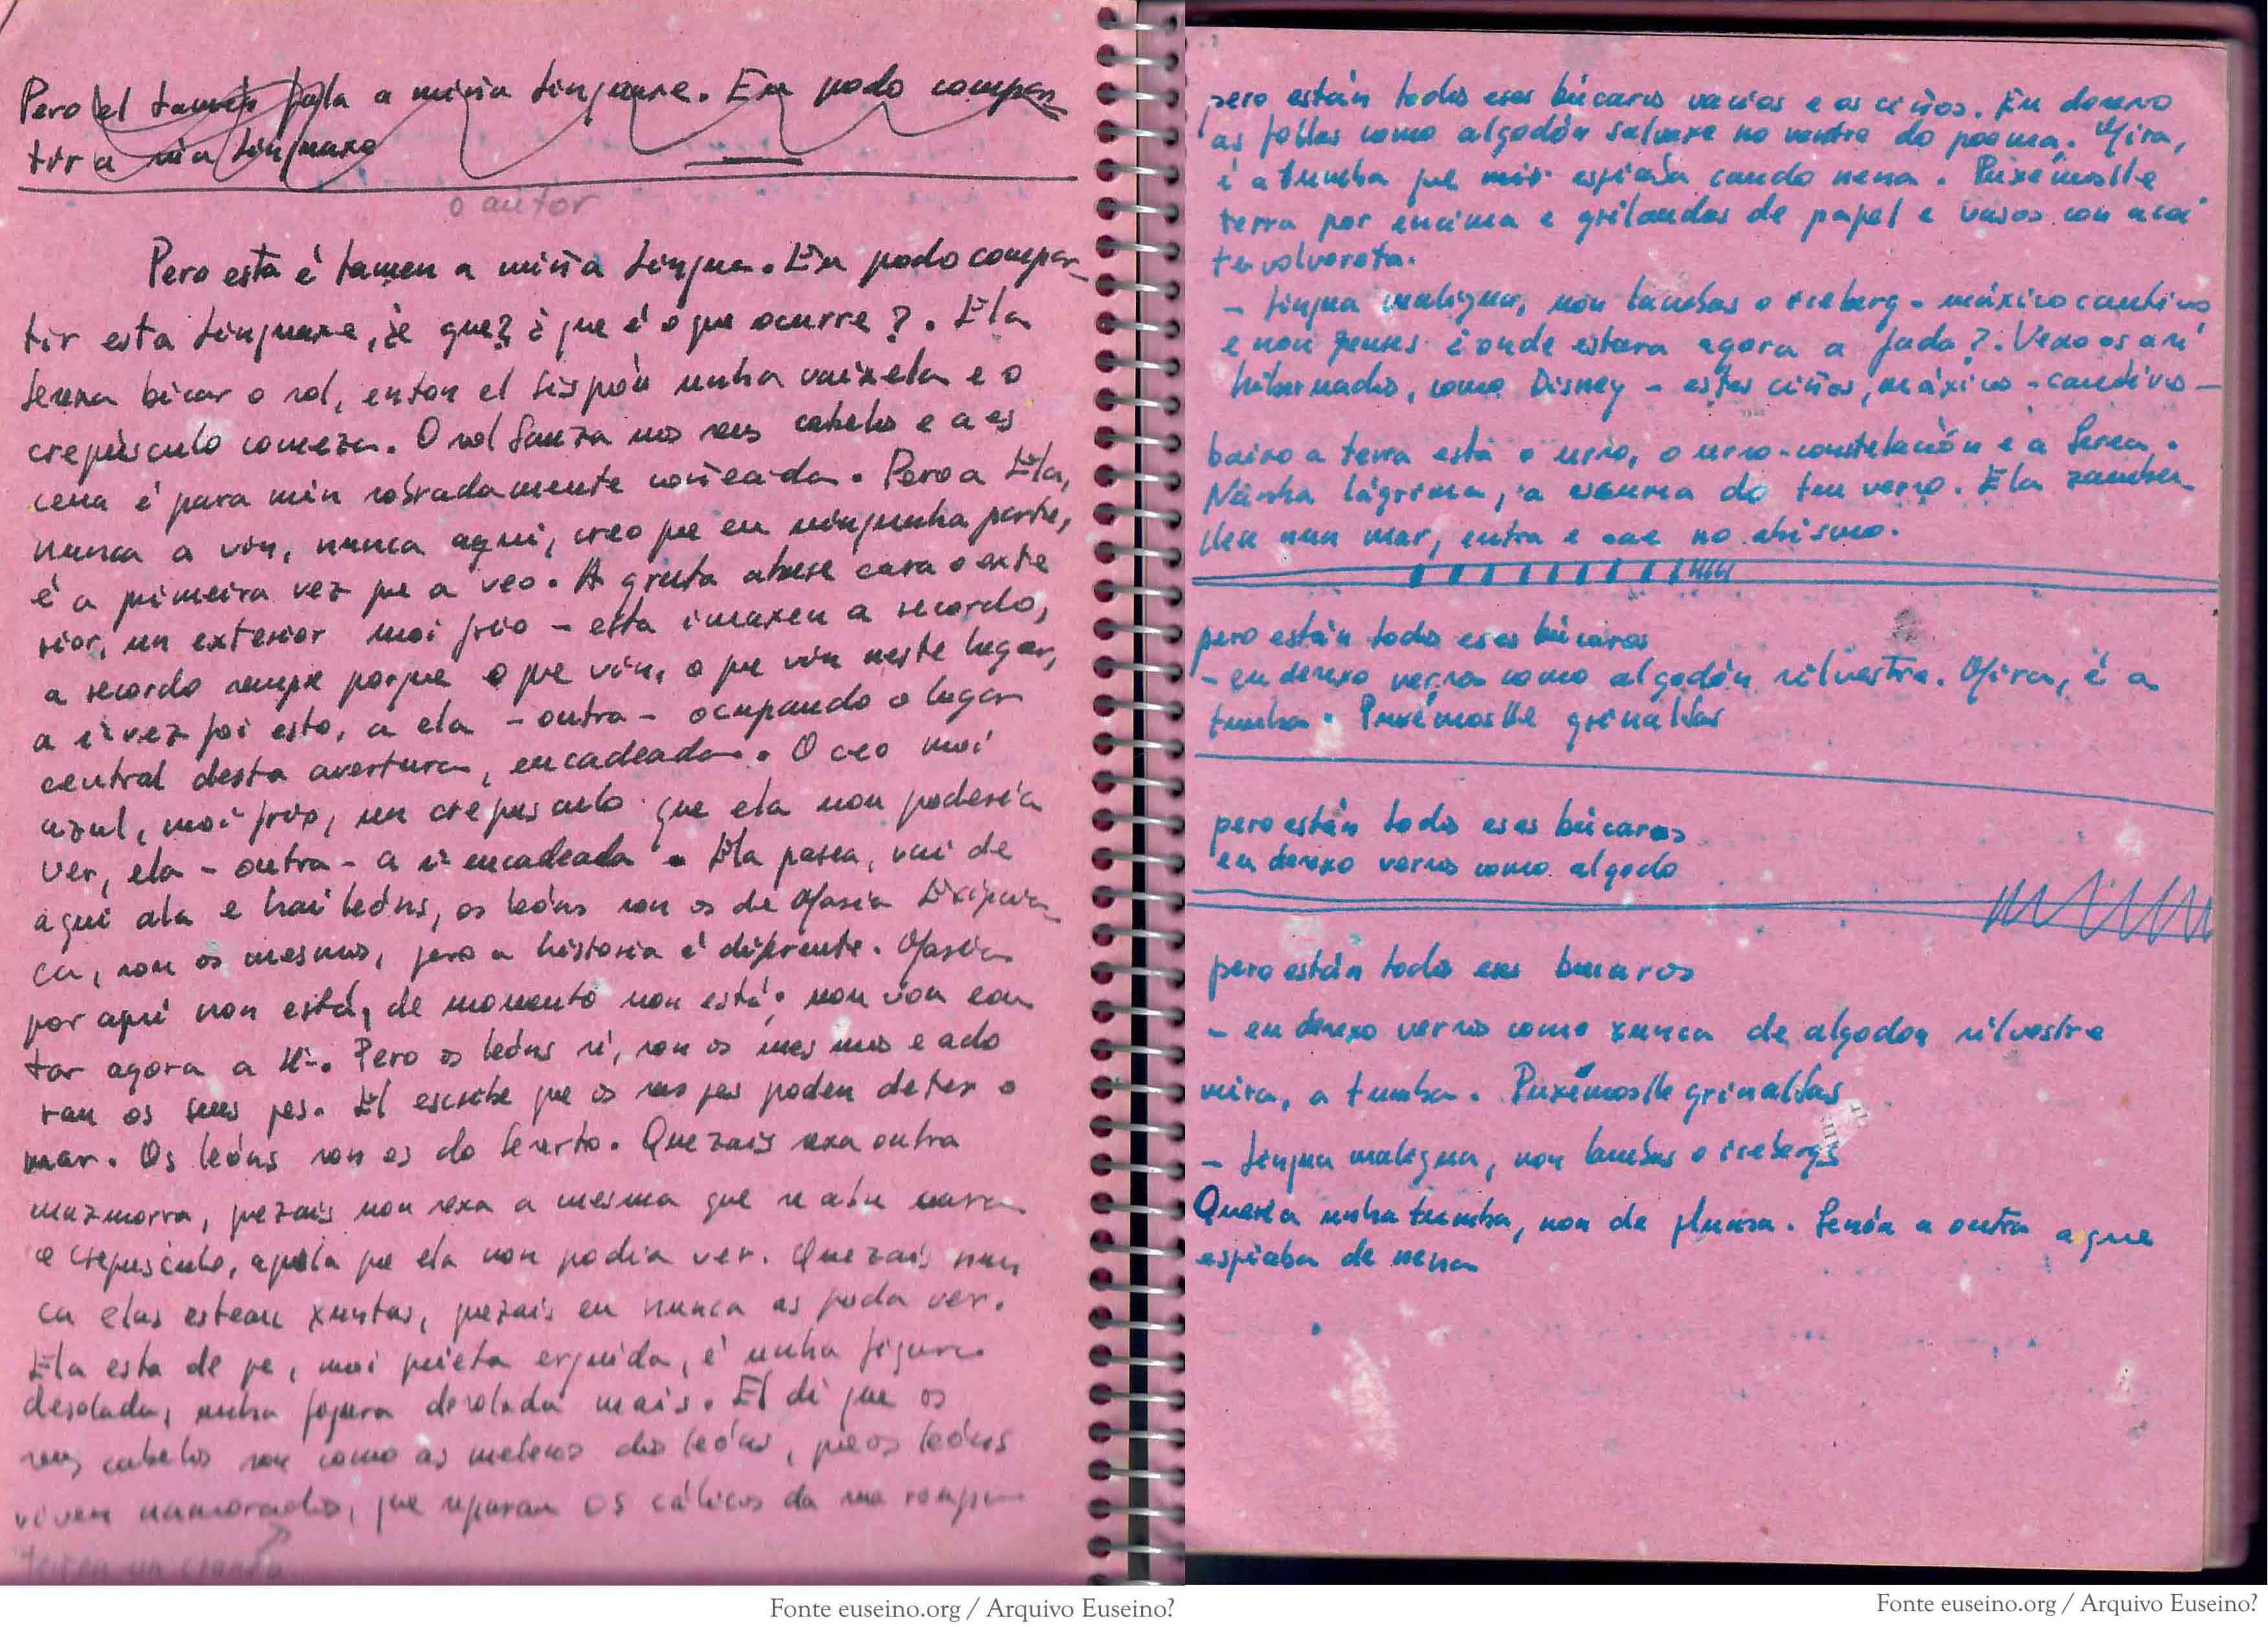 Pero el tamén fala a miña linguaxe. Eu podo compar
tir a súa linguaxe
o autor
Pero esta é tamen a miña lingua. Eu podo compar_
tir esta linguaxe, ¿e que? ¿que é o que ocurre?. Ela
desexa bicar o sol, enton el dispón unha vaixela e o
crepúsculo comeza. O sol danza nos seus cabelos e a es
cena é para min sobradamente coñecida. Pero a Ela,
nunca a vin, nunca aquí, creo que en ningunha parte,
é a primeira vez que a veo. A gruta abrese cara o exte
rior, un exterior moi frio – esta imaxen a recordo,
a recordo sempre porque o que vin, o que vin neste lugar,
a 1ª vez foi esto, a ela – outra – ocupando o lugar
central desta avertura, encadeada. O ceo moi
azul, moi frio, un crepusculo que ela non poderia
ver, ela – outra – a 1ª encadeada. Ela pasea, vai de
aquí alá e hai leóns, os leóns son os de María Exipcia_
ca, son os mesmos, pero a historia é diferente. María
por aquí non está, de momento non está; non vou con
tar agora a Hª. Pero os leóns si, son os mesmos e ado
ran os seus pes. El escribe que os seus pes poden deter o
mar. Os leóns son os do deserto. Quezais sexa outra
mazmorra, quezais non sexa a mesma que se abre cara
o crepúsculo, aquela que ela non podia ver. Quezais nun
ca elas estean xuntas, quezais eu nunca as poda ver.
Ela esta de pe, moi quieta erguida, é unha figura
desolada, unha figura desolada mais. El di que os
seus cabelos son como as melenas dos leóns, que os leóns
viven namorados, que separan os cálices da sua roupa
pero están todos eses búcaros vacios e os ciños. Eu deixo
as follas como algodón salvaxe no ventre do poema. Mira,
é a tumba que espiaba cando nena. Puxémoslle
terra por encima e grilandas de papel e vasos con acei
te volvoreta.
– lingua maligna, non lambas o iceberg – máxico cautivo,
e non penses ¿onde estara agora a fada?. Vexo os así
hibernados, como Disney – estes ciños, máxicos – cautivos –
baixo a terra está o urso, o urso-constelación e a Serea.
Nunha lágrima, a escuma do teu verso. Ela zambu
llese nun mar, entra e sae no abismo.
pero están todos eses búcaros
– eu deixo versos como algodón silvestre. Mira, é a
tumba. Puxémoslle grinaldas
pero están todos eses búcaros
eu deixo versos como algodo
pero están todos eses bucaros
– eu deixo versos como xunca de algodon silvestre
mira, a tumba. Puxémoslle grinaldas
– lingua maligna, non lambas o icebergs
Queria unha tumba, non de plumsa. Senón a outra a que
espiaba de nena
Fonte euseino.org / Arquivo Euseino?
Fonte euseino.org / Arquivo Euseino?